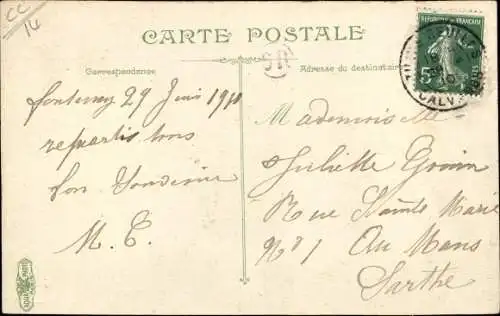 CC
14
CARTE POSTALE
Correspondance
OR
Adresse du destinataire
REPUBLIQUE FRANÇAISE
5c
CALVADOS
Fontenay 29 Juin 1911
repartis tous
bon Souvenir
M. C.
Mademoiselle
Juliette Gouin
Rue Sainte Marie
No 1 Au Mans
Sarthe